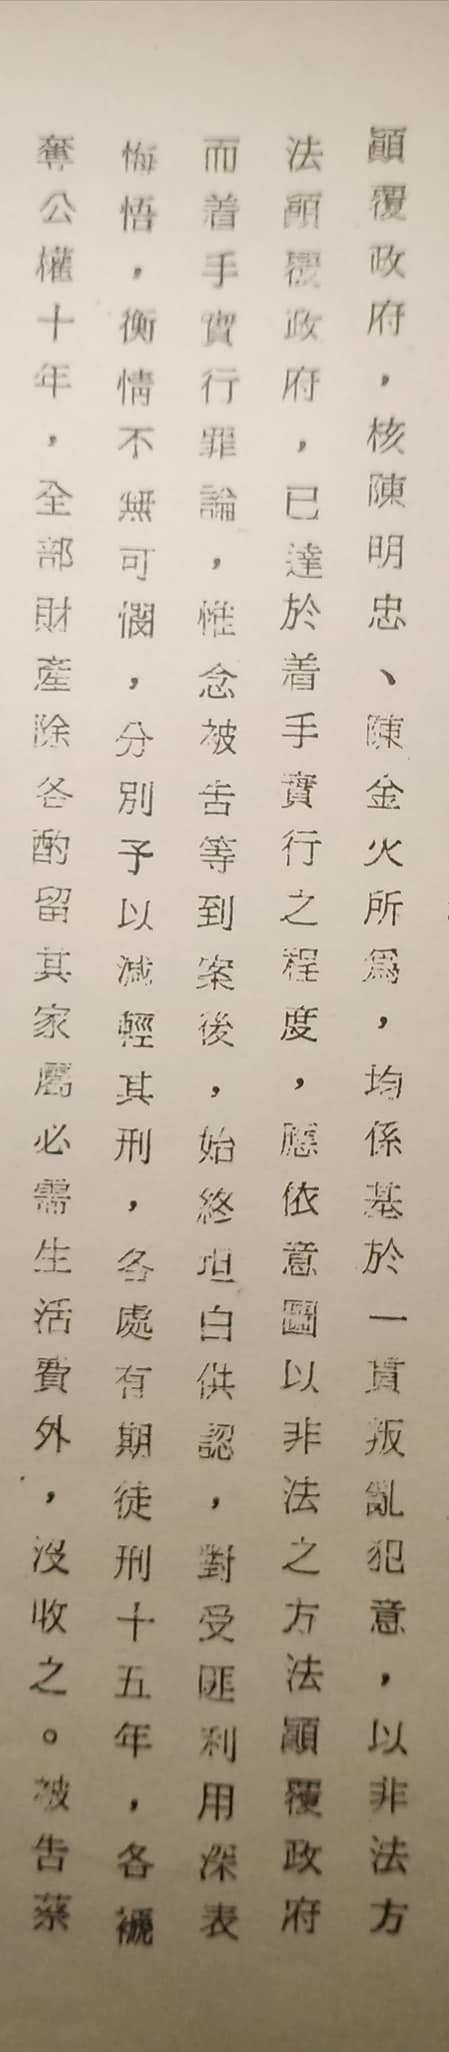 顚覆政府，核陳明忠、陳金火所爲，均係基於一貫叛亂犯意，以非法方
法顚覆政府，已達於着手實行之程度，應依意圖以非法之方法顚覆政府
而着手實行罪論，惟念被告等到案後，始終坦白供認，對受匪利用深表
悔悟，衡情不無可憫，分別予以減輕其刑，各處有期徒刑十五年，各褫
奪公權十年，全部財產除各酌留其家屬必需生活費外，沒收之。被告蔡